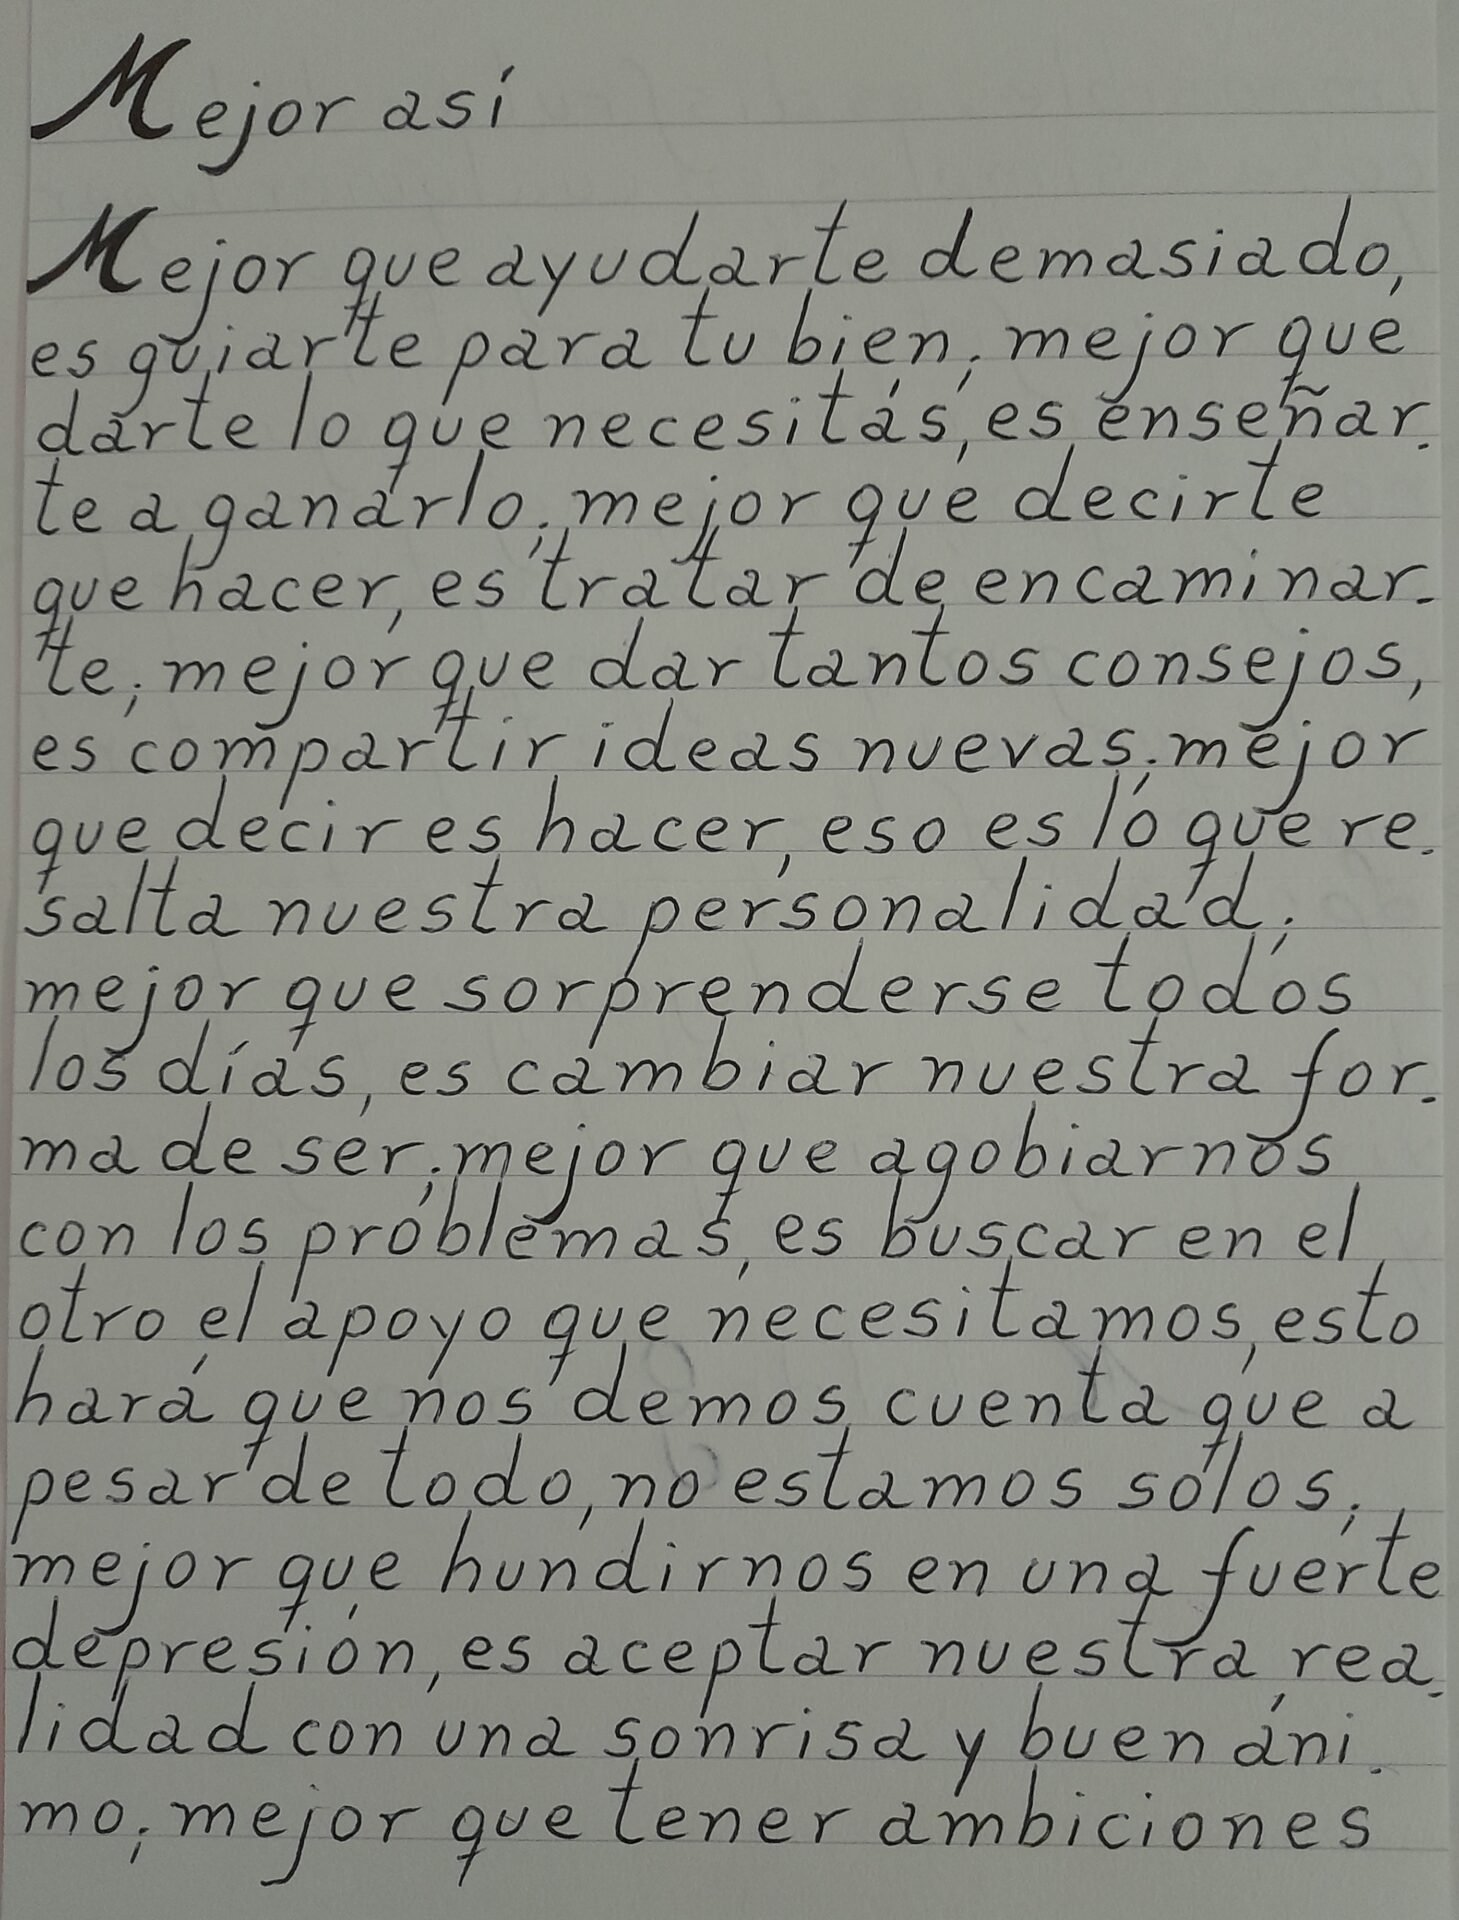 Mejor así
Mejor que ayudarte demasiado,
es guiarte para tu bien; mejor que
darte lo que necesitás, es enseñar-
te a ganarlo; mejor que decirte
que hacer, es tratar de encaminar-
te; mejor que dar tantos consejos,
es compartir ideas nuevas; mejor
que decir es hacer, eso es lo que re-
salta nuestra personalidad;
mejor que sorprenderse todos
los días, es cambiar nuestra for-
ma de ser; mejor que agobiarnos
con los problemas, es buscar en el
otro el apoyo que necesitamos, esto
hará que nos demos cuenta que a
pesar de todo, no estamos solos;
mejor que hundirnos en una fuerte
depresión, es aceptar nuestra rea-
lidad con una sonrisa y buen áni-
mo; mejor que tener ambiciones